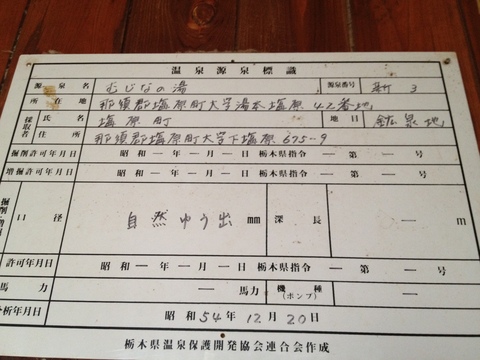 温泉源泉標識
源泉名 むじなの湯 源泉番号 新 3
所在地 那須郡塩原町大字湯本塩原 42番地
採取者 氏名 塩原町 地目 鉱泉地
住所 那須郡塩原町大字下塩原 675-9
掘削許可年月日 昭和 ー 年 ー 月 ー 日 栃木県指令 ー 第 ー 号
増掘許可年月日 昭和 ー 年 ー 月 ー 日 栃木県指令 ー 第 ー 号
口径 自然ゆう出 mm 深長 ー m
許可年月日 昭和 ー 年 ー 月 ー 日 栃木県指令 ー 第 ー 号
馬力 ー 馬力 機種(ポンプ) ー
分析年月日 昭和 54 年 12 月 20 日
栃木県温泉保護開発協会連合会作成